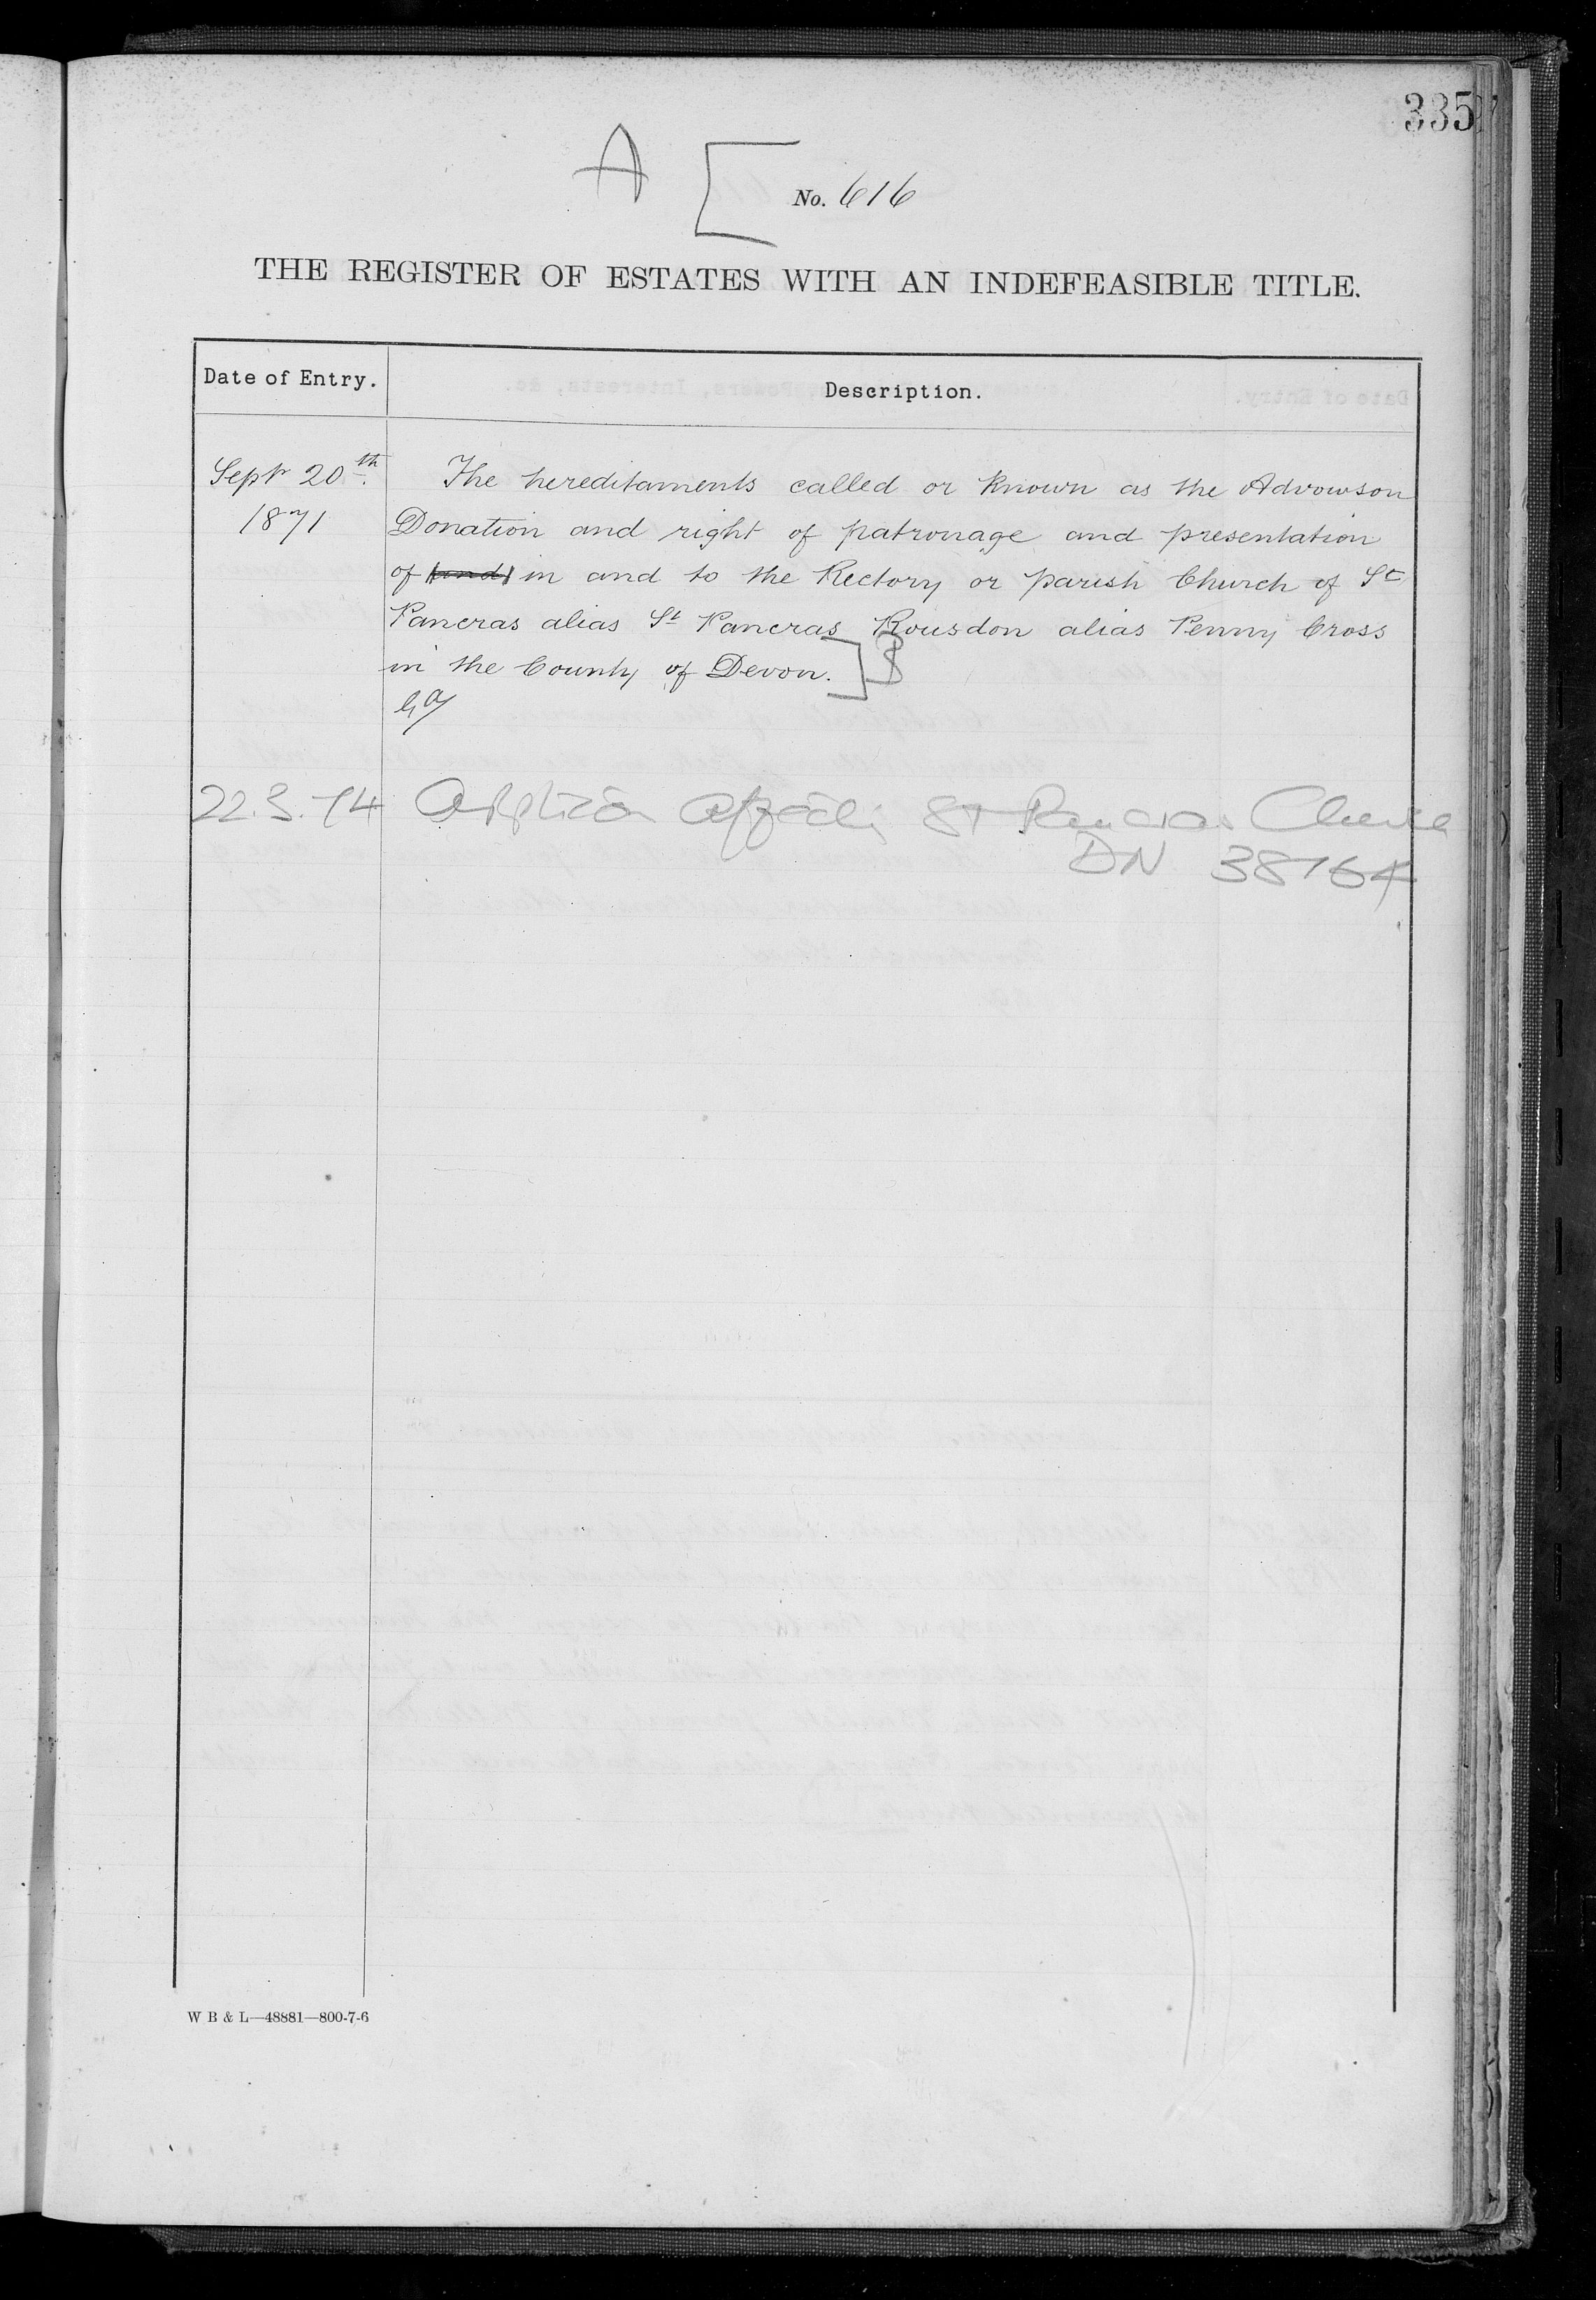 335
A [
No. 616
THE REGISTER OF ESTATES WITH AN INDEFEASIBLE TITLE.
Date of Entry. Description.
Sept 20th. The hereditaments called or known as the Advowson
1871 Donation and right of patronage and presentation
of (and) in and to the Rectory or parish Church of St
Pancras alias St Pancras Rousdon alias Penny Cross
in the County of Devon. ] B
22.3.74 St Pancras Church
DN 38764
W B & L—48881—800-7-6